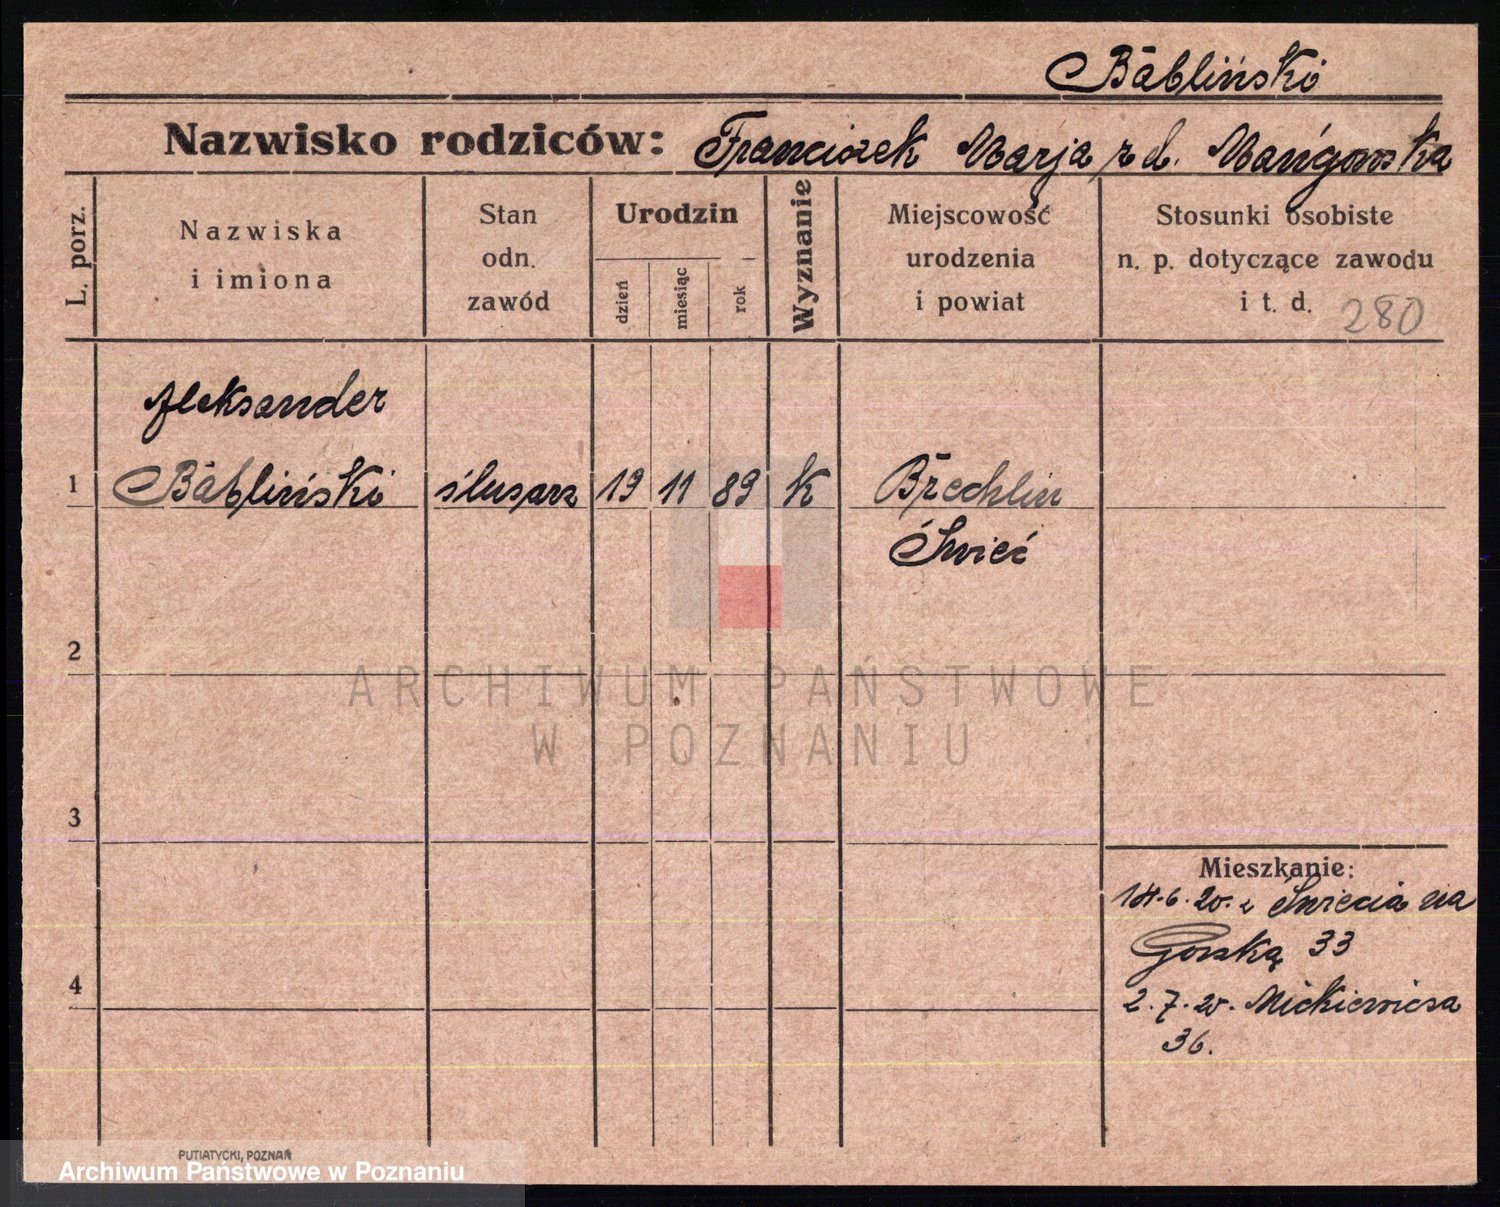 Bābliński
Nazwisko rodziców: Franciszek Marja z d.
L. porz.
Nazwiska
i imiona
Stan
odn.
zawód
Urodzin
dzień
miesiąc
rok
Wyznanie
Miejscowość
urodzenia
i powiat
Stosunki osobiste
n. p. dotyczące zawodu
i t. d. 280
Aleksander
1 Bābliński ślusarz 19 11 89 K Brechlin
Świeć
2
3
4
Mieszkanie:
14.6.20. z Świecia na
Górską 33
2.7.20. Mickiewicza
36.
ARCHIWUM PAŃSTWOWE
W POZNANIU
PUTIATYCKI, POZNAŃ
Archiwum Państwowe w Poznaniu